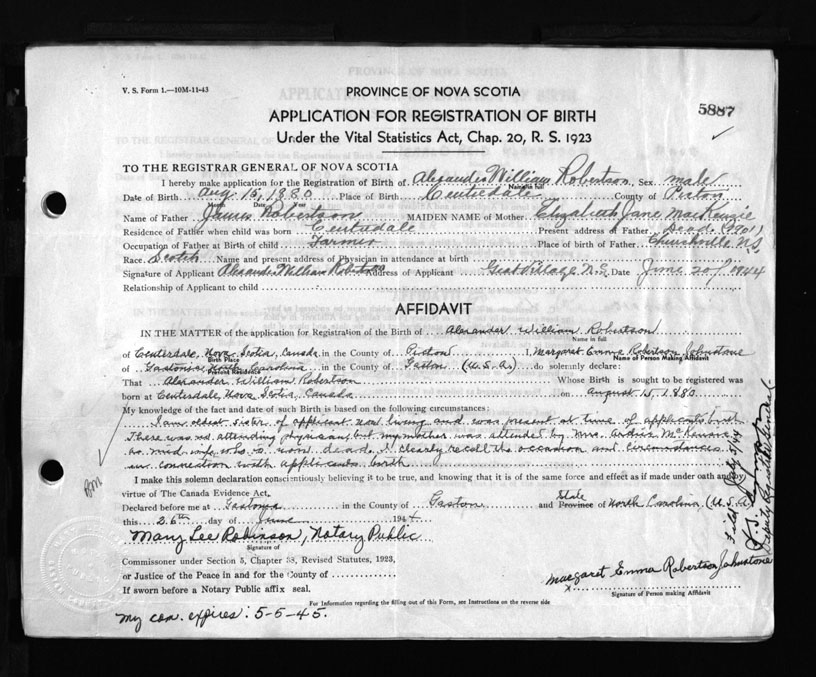 V. S. Form 1.—10M-11-43
PROVINCE OF NOVA SCOTIA
5887
APPLICATION FOR REGISTRATION OF BIRTH
Under the Vital Statistics Act, Chap. 20, R. S. 1923
TO THE REGISTRAR GENERAL OF NOVA SCOTIA
I hereby make application for the Registration of Birth of Alexander William Robertson, Sex male
Name in full
Date of Birth Aug 15, 1880 Place of Birth Centredale County of Pictou
Month Date Year
Name of Father James Robertson MAIDEN NAME of Mother Elizabeth Jane MacKenzie
Residence of Father when child was born Centredale Present address of Father Dead (1901)
Occupation of Father at Birth of child Farmer Place of birth of Father Churchville N.S.
Race Scotch Name and present address of Physician in attendance at birth
Signature of Applicant Alexander William Robertson Address of Applicant Great Village N.S. Date June 20/1944
Relationship of Applicant to child
AFFIDAVIT
IN THE MATTER of the application for Registration of the Birth of Alexander William Robertson
Name in full
of Centerdale, Nova Scotia, Canada in the County of Pictou I, Margaret Emma Robertson Johnstone
Birth Place Name of Person Making Affidavit
of Gastonia North Carolina in the County of Gaston (U.S.A.) do solemnly declare:
Present Residence
That Alexander William Robertson Whose Birth is sought to be registered was
born at Centerdale, Nova Scotia, Canada on August 15, 1880
My knowledge of the fact and date of such Birth is based on the following circumstances:
I am oldest sister of applicant now living and was present at time of applicants birth
There was no attending physician, but my mother was attended by Mrs. McKenzie
as mid wife, who is now dead. I clearly recall the occasion and circumstances
in connection with applicants birth
I make this solemn declaration conscientiously believing it to be true, and knowing that it is of the same force and effect as if made under oath and by
virtue of The Canada Evidence Act.
Declared before me at Gastonia in the County of Gaston and State Province of North Carolina, (U.S.A.)
this 26th day of June 1944
Mary Lee Robinson, Notary Public
Signature of
Commissioner under Section 5, Chapter 38, Revised Statutes, 1923,
or Justice of the Peace in and for the County of
If sworn before a Notary Public affix seal.
Margaret Emma Robertson Johnstone
Signature of Person making Affidavit
For Information regarding the filling out of this Form, see Instructions on the reverse side
My com. expires: 5-5-45.
Filed July 5/44
Deputy Registrar General.